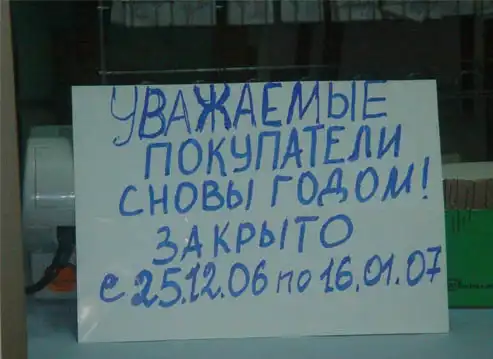 УВАЖАЕМЫЕ
ПОКУПАТЕЛИ
СНОВЫ ГОДОМ!
ЗАКРЫТО
С 25.12.06 по 16.01.07